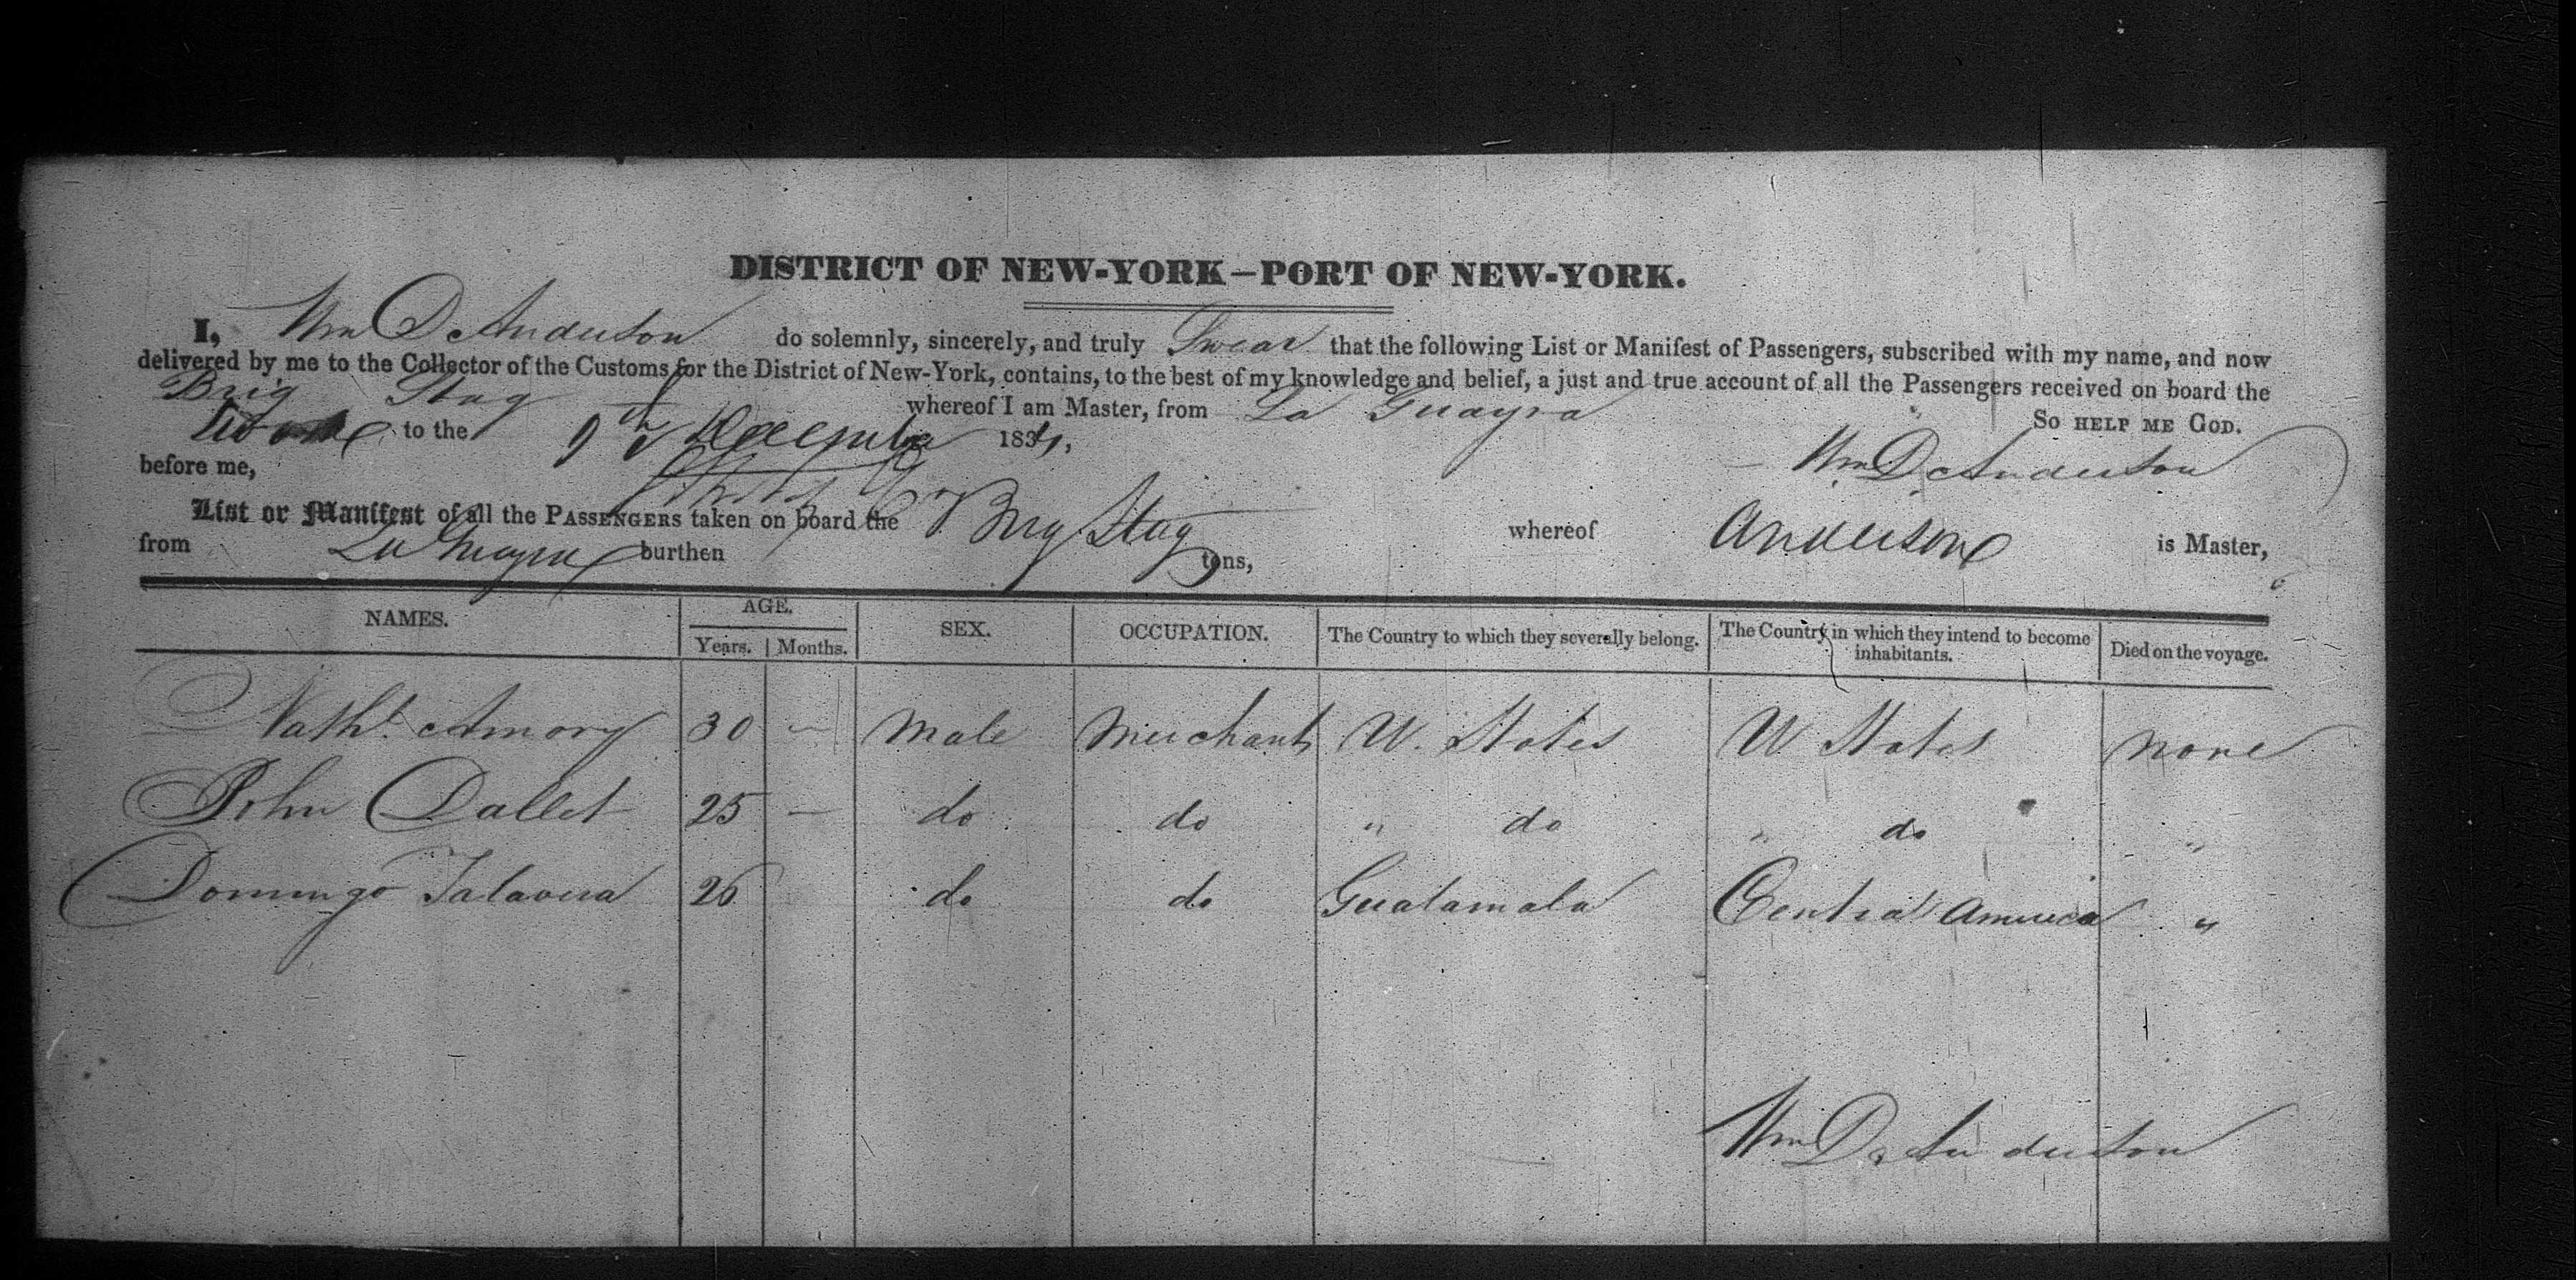 DISTRICT OF NEW-YORK—PORT OF NEW-YORK.
I, Wm D Anderson do solemnly, sincerely, and truly Swear that the following List or Manifest of Passengers, subscribed with my name, and now
delivered by me to the Collector of the Customs for the District of New-York, contains, to the best of my knowledge and belief, a just and true account of all the Passengers received on board the
Brig Stag whereof I am Master, from La Guayra So HELP ME GOD.
to the 9th December 1834,
before me, Wm D Anderson
List or Manifest of all the PASSENGERS taken on board the Brig Stag whereof Anderson is Master,
from La Guayra burthen tons,
NAMES. AGE. SEX. OCCUPATION. The Country to which they severally belong. The Country in which they intend to become inhabitants. Died on the voyage.
Years. Months.
Nathl. Amory 30 — Male Merchant U. States U States none
John Dallet 25 — do do " do " do "
Domingo Talavera 26 do do Guatamala Central America "
Wm D. Anderson